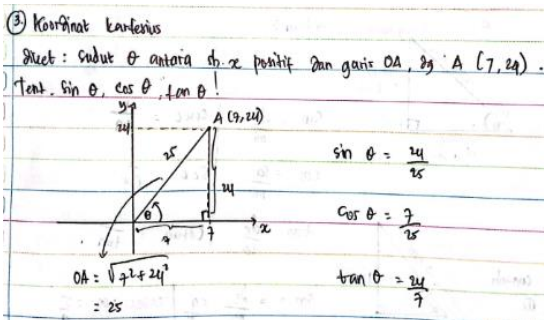 ③ Koordinat kartesius
diket : sudut θ antara sb. x positif dan garis OA, dg A (7, 24).
Tent. sin θ, cos θ, tan θ !
y
24
A (7,24)
25
24
θ
7
7
x
OA = √7² + 24²
= 25
sin θ = 24/25
cos θ = 7/25
tan θ = 24/7